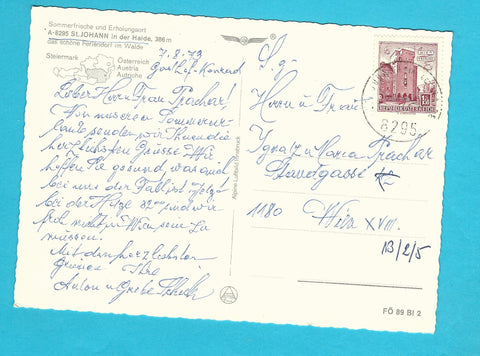 Sommerfrische und Erholungsort
A-8295 ST. JOHANN in der Haide, 386 m
das schöne Feriendorf im Walde
Steiermark
Österreich
Austria
Autriche
7.8.73
Gasthof-Konrad
Lieber Herr u. Frau Prachar!
Von unserem Sommerur-
laube senden wir Ihnen die
herzlichsten Grüsse Wir
hoffen Sie gesund, was auch
bei uns der Fall ist Jetzt
bei der Hitze 32° sind wir
froh nicht in Wien sein zu
müssen.
Mit den herzlichsten
Grüssen Ihre
Anton u Grete
S.g.
Herrn u Frau
Ignaz u Maria Prachar
Standgasse
1180 Wien XVIII.
13/2/5
8295
REPUBLIK ÖSTERREICH
Alpine Luftbild
FÖ 89 BI 2